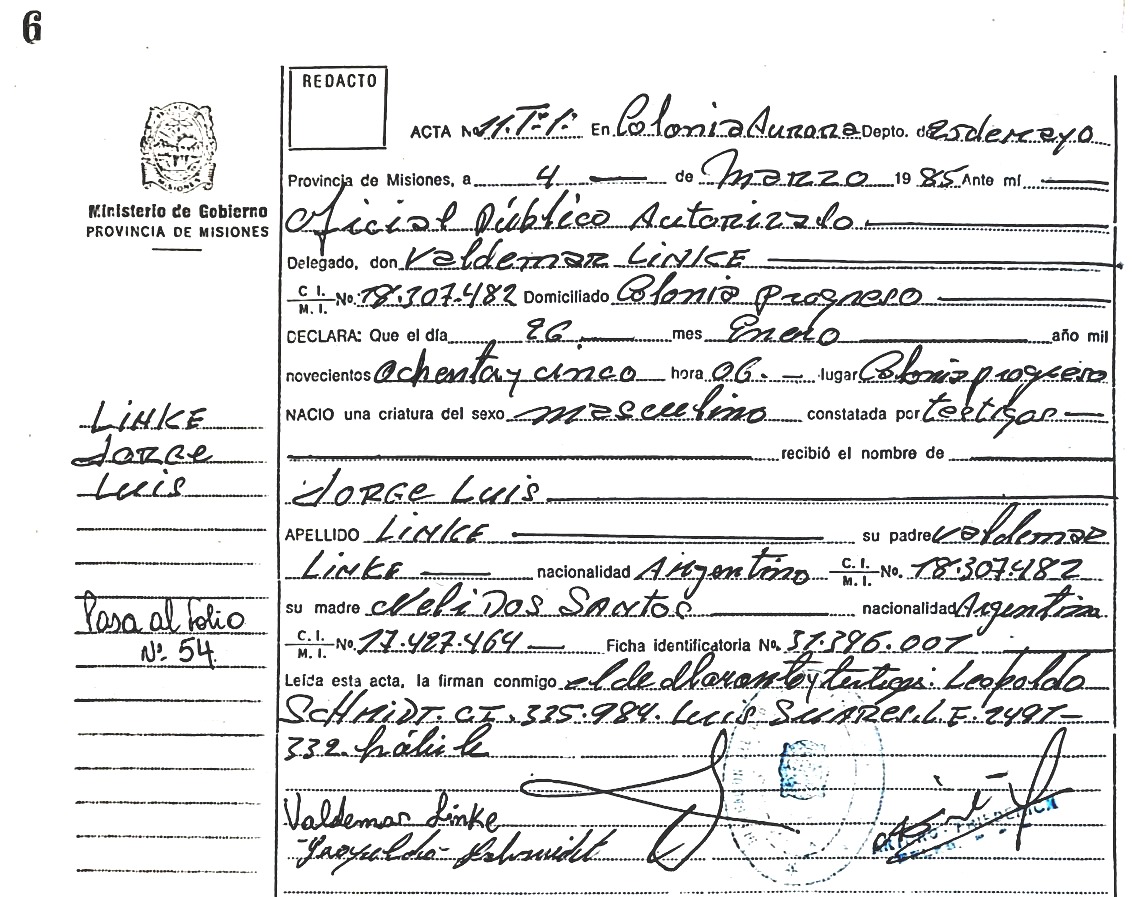 6
REDACTO
ACTA No 11.Tº1º En Colonia Aurora Depto. de 25 de mayo
Provincia de Misiones, a 4 de Marzo 1985 Ante mí
Oficial Público Autorizado
Ministerio de Gobierno
PROVINCIA DE MISIONES
Delegado, don Valdemar LiNKE
C. I.
M. I. No. 18.307.482 Domiciliado Colonia progreso
DECLARA: Que el día 26 mes Enero año mil
novecientos Ochenta y cinco hora 06. lugar Colonia progreso
NACIO una criatura del sexo masculino constatada por testigos
LiNKE
JORGE
LUIS
recibió el nombre de
JORGE LUIS
APELLIDO LiNKE su padre Valdemar
LiNKE nacionalidad Argentino C. I.
M. I. No. 18.307.482
su madre Neli DOS SANTOS nacionalidad Argentina
Pasa al folio
Nº 54
C. I.
M. I. No. 17.427.464 Ficha identificatoria No. 31.396.001
Leída esta acta, la firman conmigo el declarante y testigos: Leopoldo
SCHMIDT. CI. 335.984. LUIS SUARES. L.E. 2497-
332. hábile
Valdemar Linke
Leopoldo Schmidt